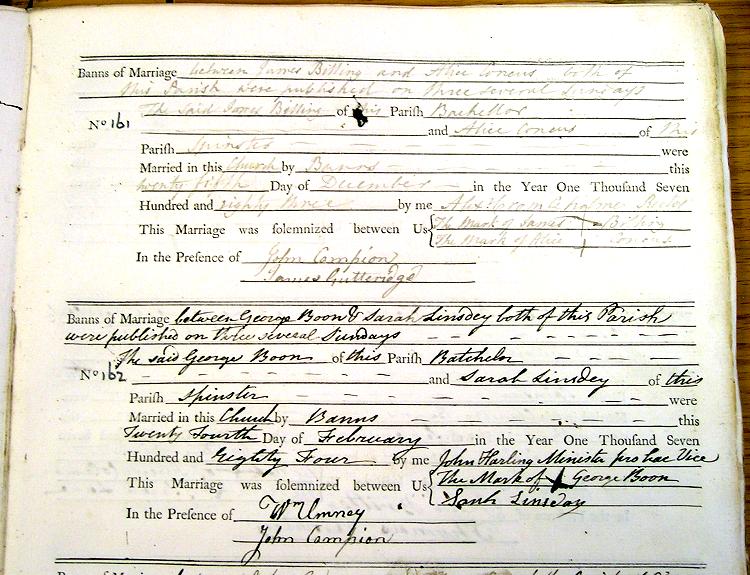 Banns of Marriage between James Bitting and Alice Coneus both of
this Parish were published on three several Sundays
The said James Bitting of this Parish Bachellor
No 161
and Alice Coneus of this
Parish Spinster were
Married in this Church by Banns this
twenty fifth Day of December in the Year One Thousand Seven
Hundred and eighty three by me
This Marriage was solemnized between Us The Mark of James Bitting
The Mark of Alice Coneus
In the Presence of John Campion
James Gutteridge
Banns of Marriage between George Boon & Sarah Linsdey both of this Parish
were published on three several Sundays
The said George Boon of this Parish Batchelor
No 162
and Sarah Linsdey of this
Parish Spinster were
Married in this Church by Banns this
Twenty Fourth Day of February in the Year One Thousand Seven
Hundred and Eighty Four by me John Harling Minister pro hac Vice
This Marriage was solemnized between Us The Mark of George Boon
Sarah Linsday
In the Presence of Wm Umney
John Campion
Banns of Marriage